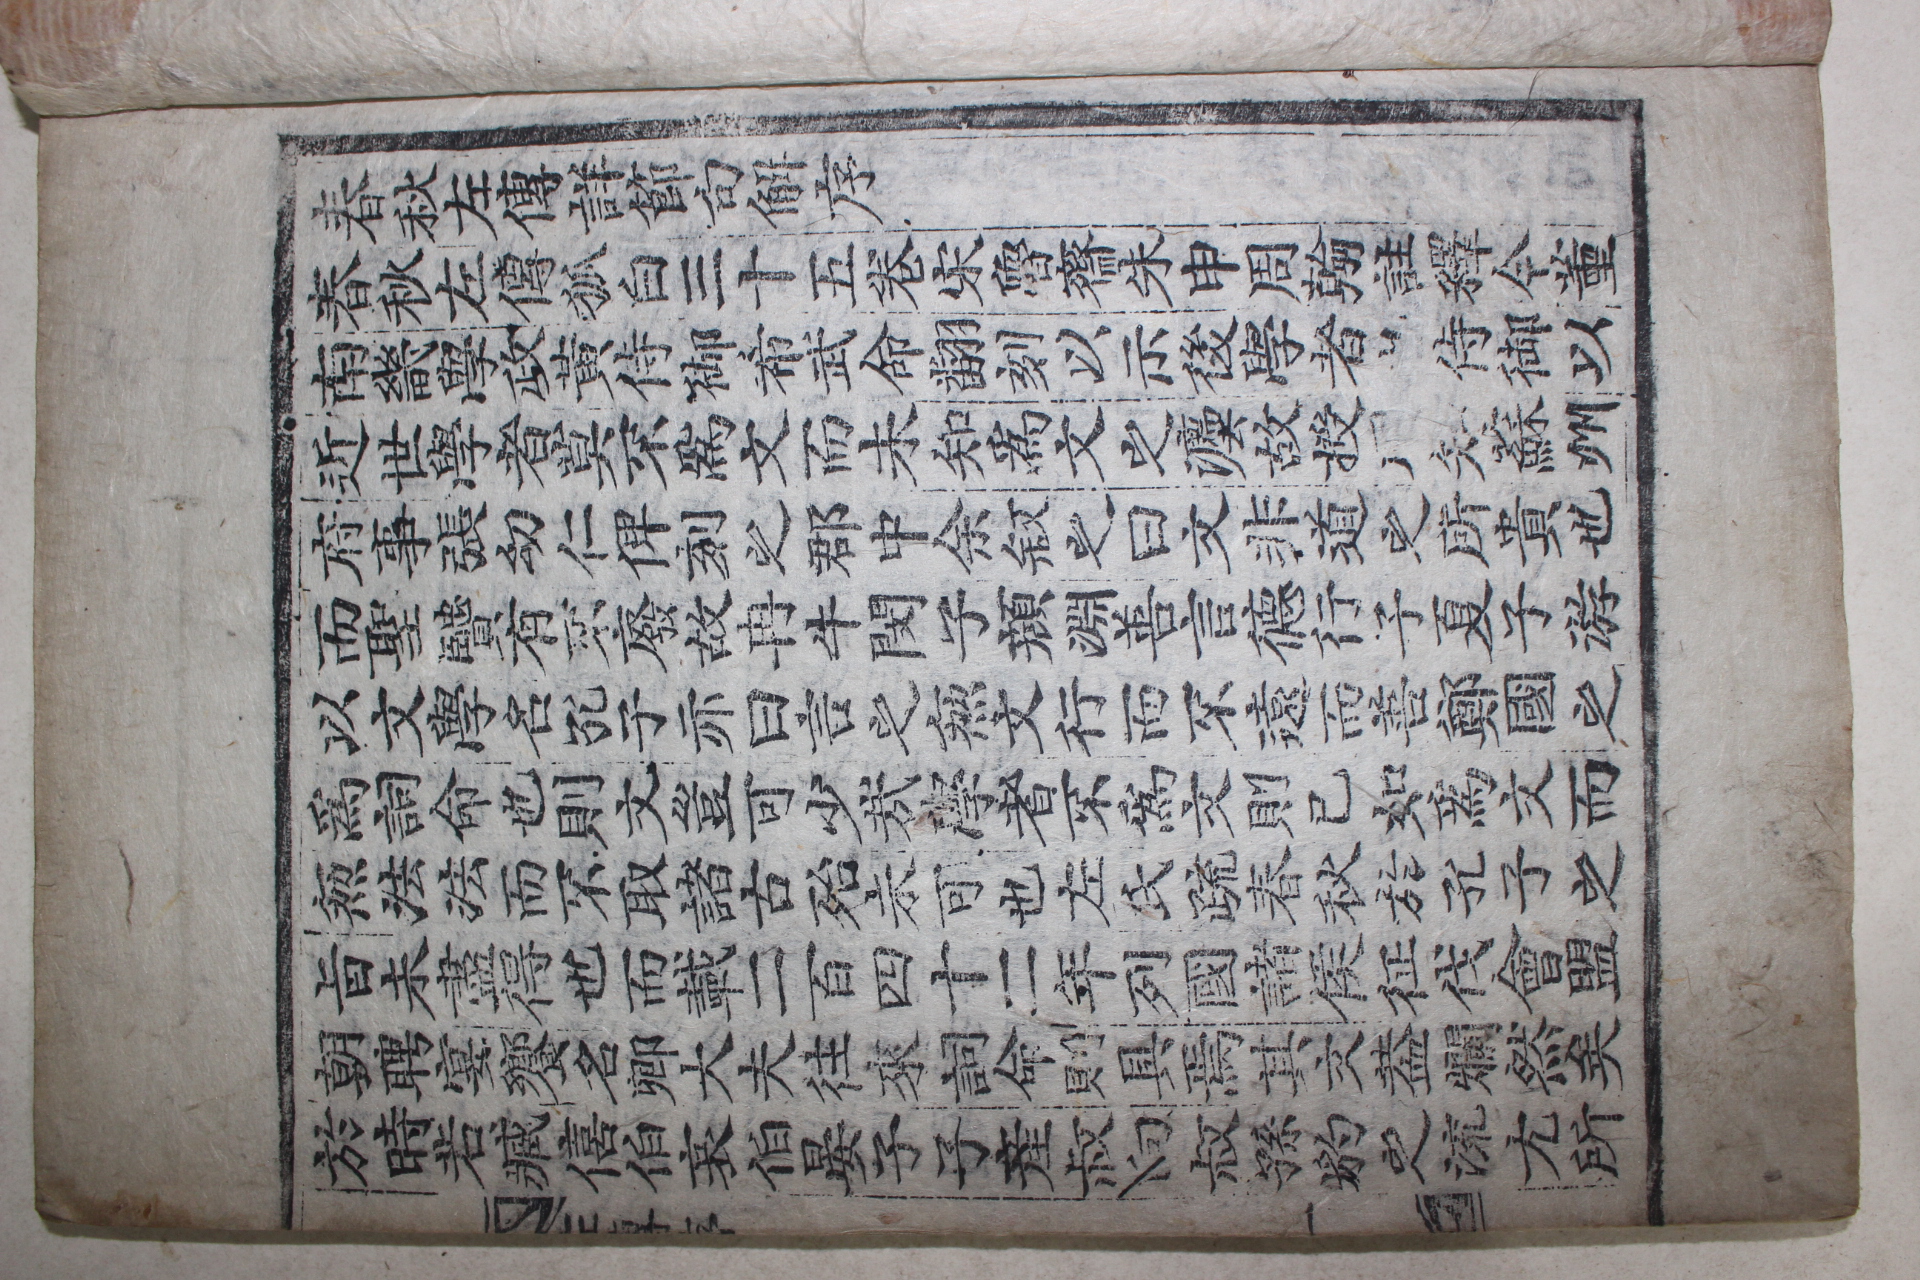 春秋左傳詳節句解序
春秋左傳狐白三十五卷宋魯齋朱申周翰註釋今董
南畿學政黃侍御希武命翻刻以示後學者 侍御以
近世學者莫不爲文而未知爲文之灋故授 知蘇州
府事張幼仁俾刻之郡中余敍之曰文非道之所貴也
而聖賢有不廢故冉牛閔子顔淵善言德行子夏子游
以文學名孔子亦曰言之無文行而不遠而善鄭國之
爲詞命也則文豈可少哉學者不爲文則已如爲文而
無法法而不取諸古殆未可也左氏疏春秋於孔子之
旨未盡得也而載二百四十二年列國諸侯征伐會盟
朝聘宴饗名卿大夫往來詞命則具焉其文蓋爛然矣
於時若臧僖伯哀伯晏子子産叔向叔孫豹之流尤所
左傳序
一